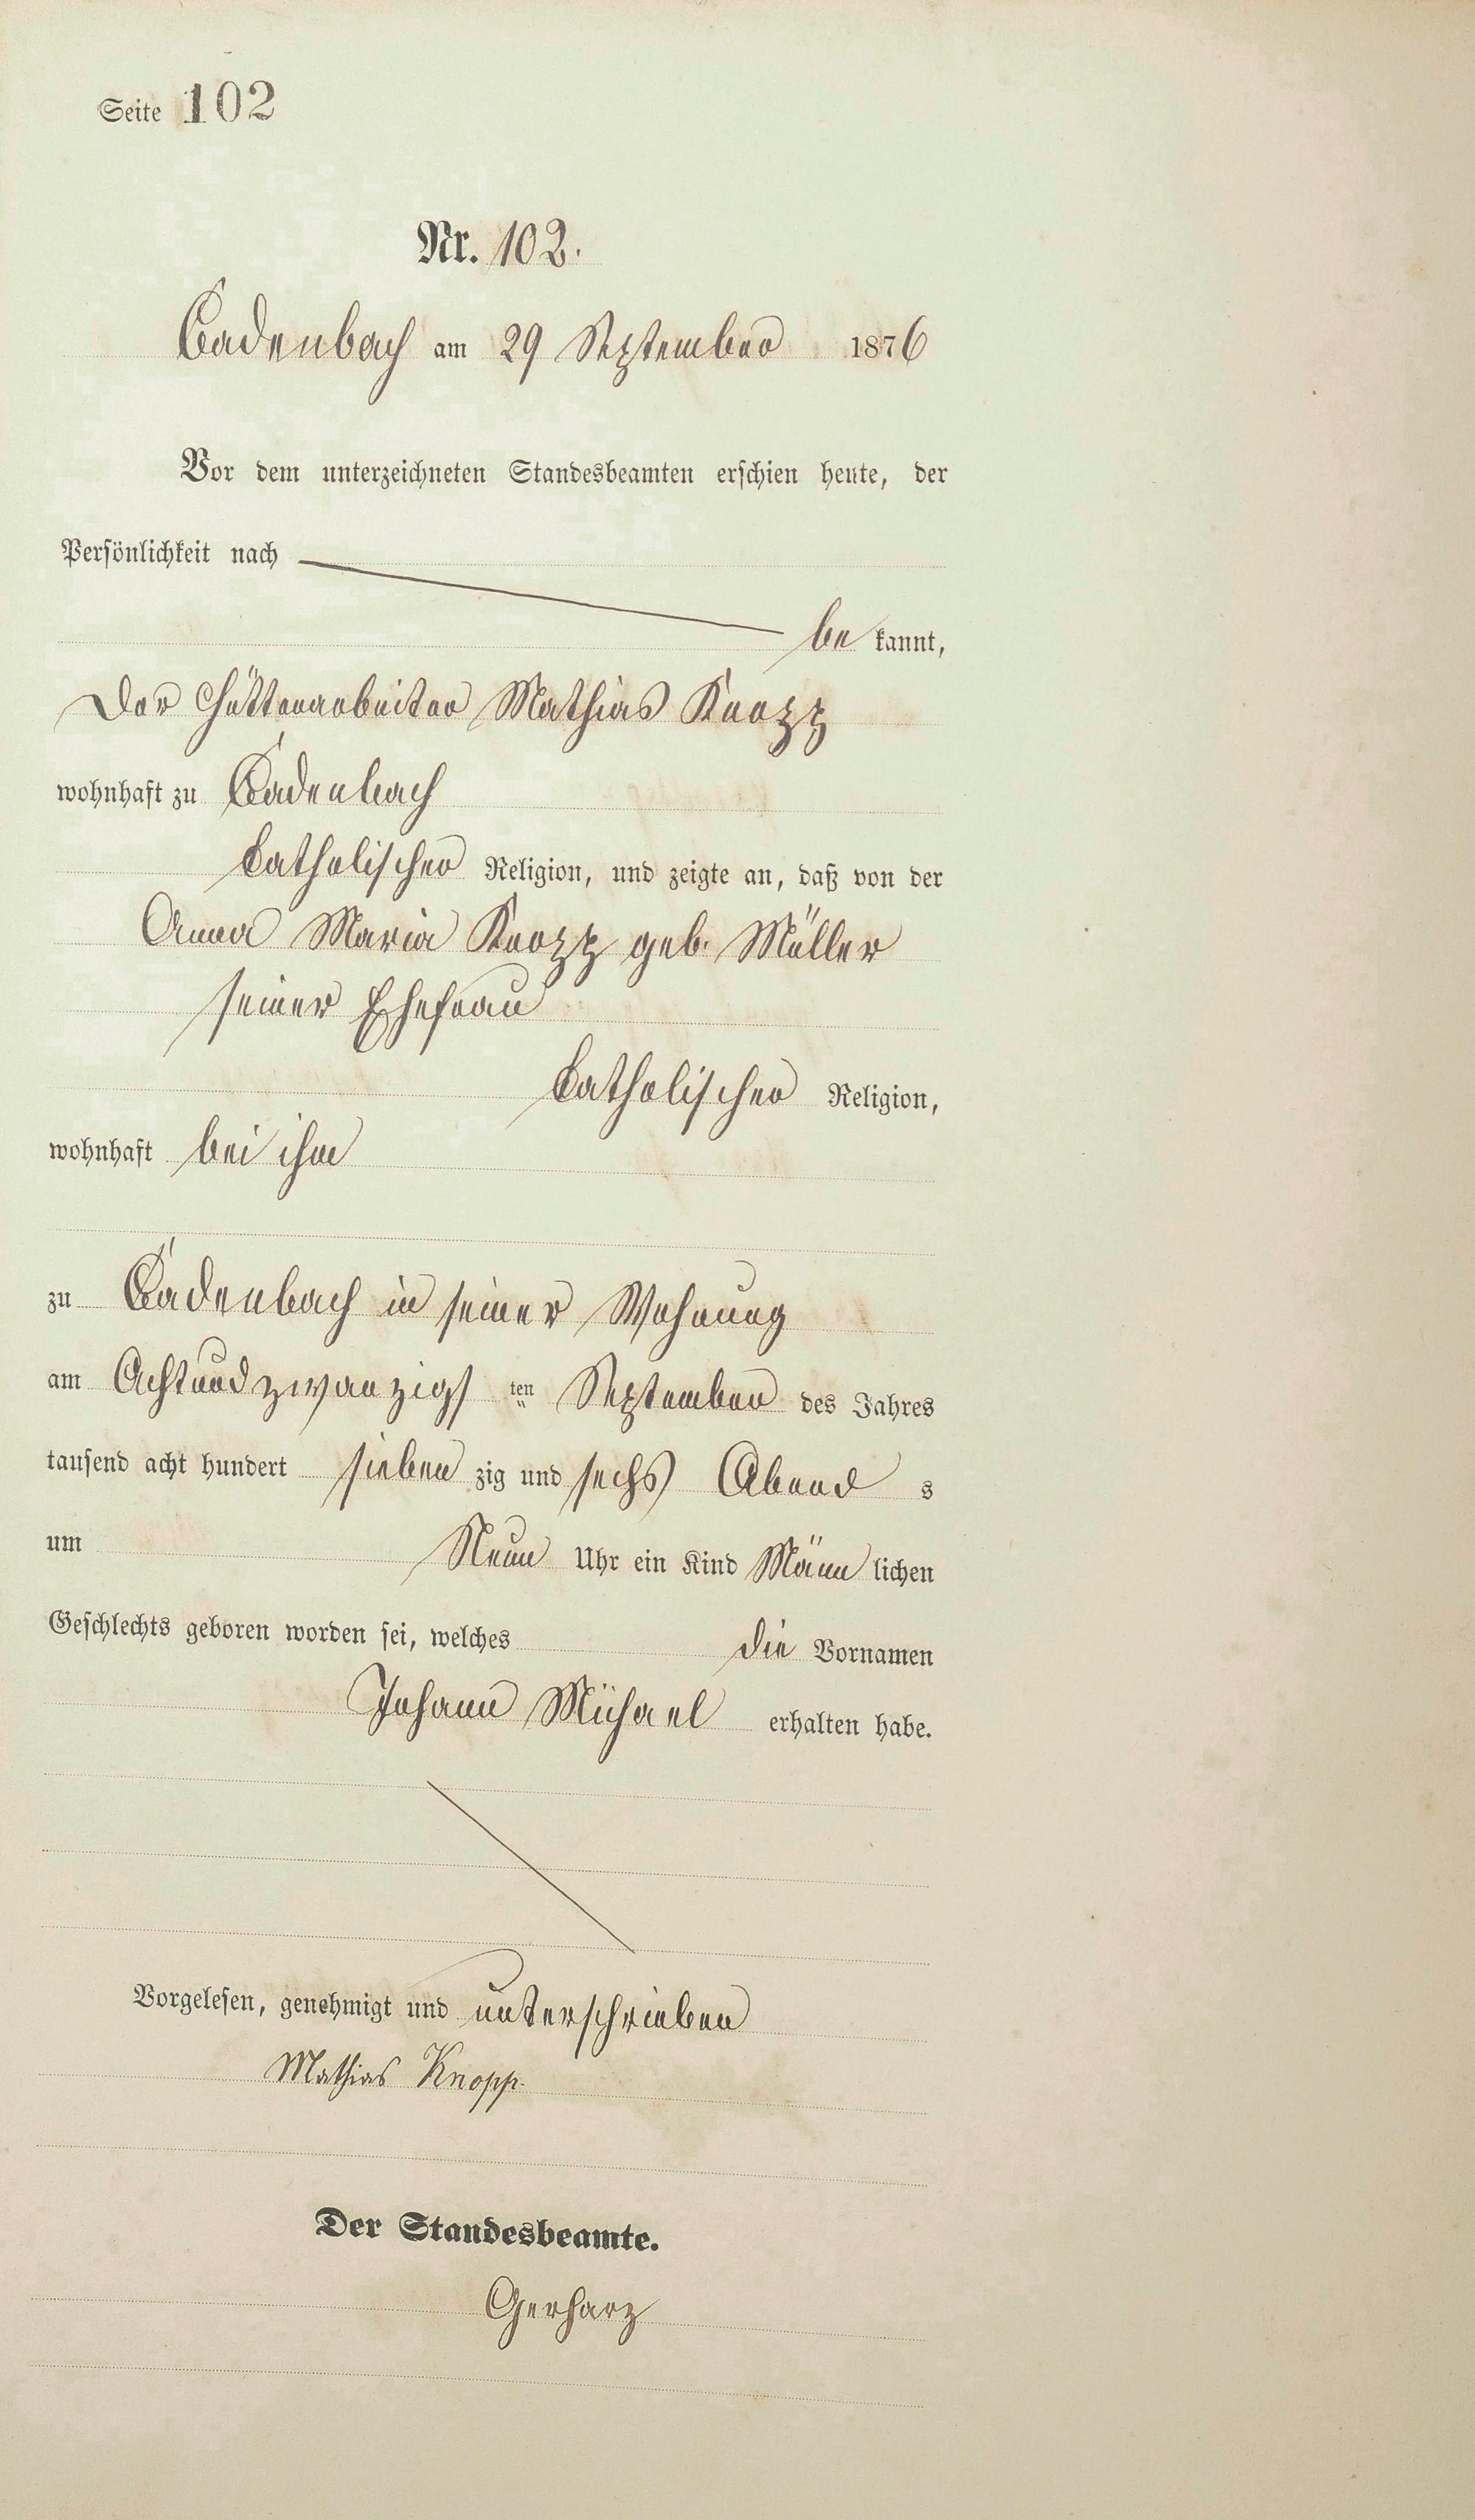 Seite 102
Nr. 102.
Cadenbach am 29 September 1876
Vor dem unterzeichneten Standesbeamten erschien heute, der
Persönlichkeit nach
be kannt,
Der Hüttenarbeiter Mathias Knopp
wohnhaft zu Cadenbach
katholischer Religion, und zeigte an, daß von der
Anna Maria Knopp geb. Müller
seiner Ehefrau
katholischer Religion,
wohnhaft bei ihm
zu Cadenbach in seiner Wohnung
am Achtundzwanzigs ten September des Jahres
tausend acht hundert sieben zig und sechs Abend s
um Neun Uhr ein Kind Männ lichen
Geschlechts geboren worden sei, welches die Vornamen
Johann Michael erhalten habe.
Vorgelesen, genehmigt und unterschrieben
Mathias Knopp.
Der Standesbeamte.
Gerharz